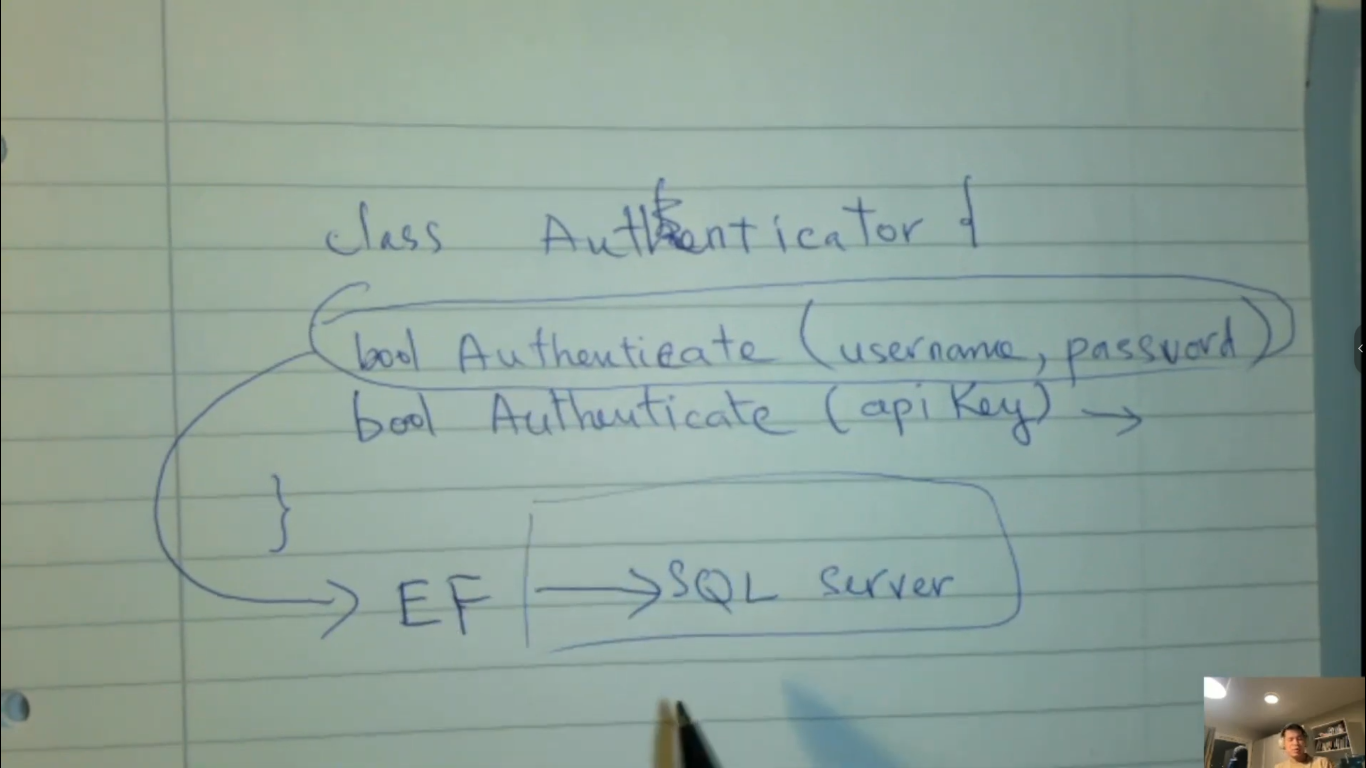 class Authenticator {
bool Authenticate (username, password)
bool Authenticate (apiKey) →
}
→ EF → SQL Server